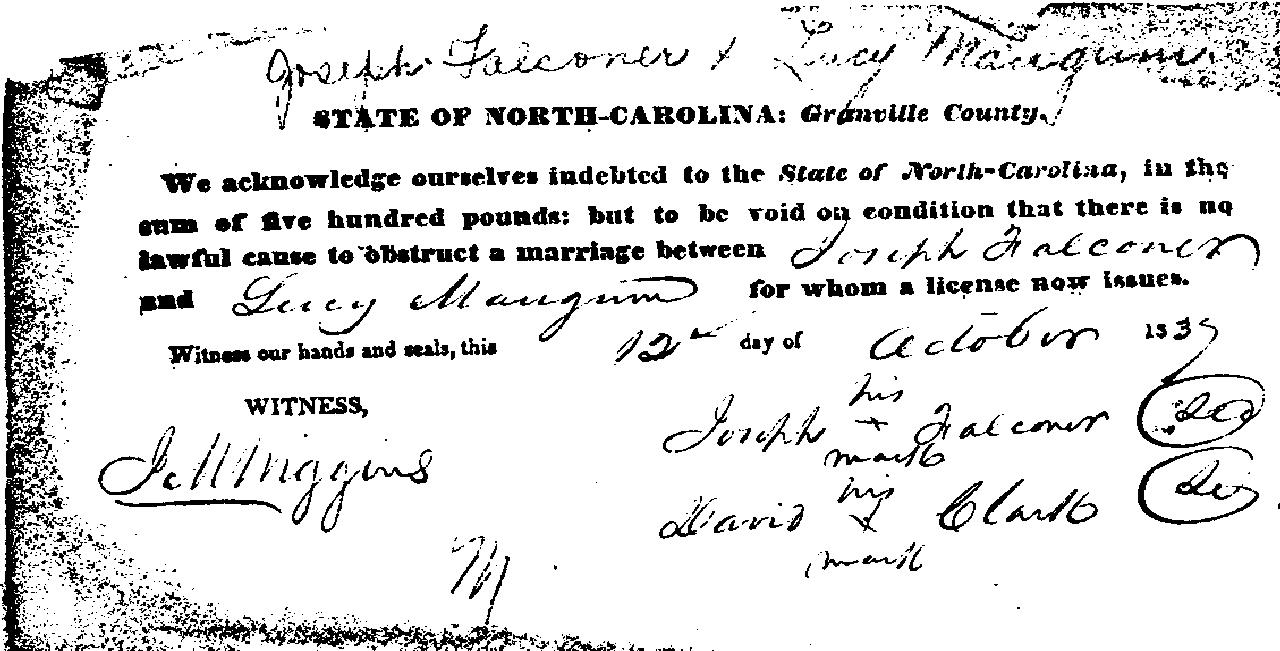 Joseph Falconer & Lucy Mangum
STATE OF NORTH-CAROLINA: Granville County.
We acknowledge ourselves indebted to the State of North-Carolina, in the
sum of five hundred pounds: but to be void on condition that there is no
lawful cause to obstruct a marriage between Joseph Falconer
and Lucy Mangum for whom a license now issues.
Witness our hands and seals, this 12th day of October 1839
WITNESS,
his
Joseph + Falconer Seal
mark
Wiggins
his
David + Clark Seal
mark
M